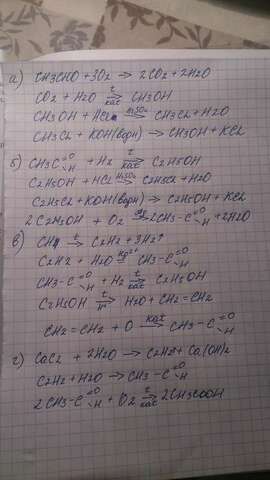 а) CH3CHO + 3O2 → 2CO2 + 2H2O
CO2 + H2O t→кат CH3OH
CH3OH + HCl H2SO4→ CH3Cl + H2O
CH3Cl + KOH(водн) → CH3OH + KCl
б) CH3C=O-H + H2 t→кат C2H5OH
C2H5OH + HCl H2SO4→ C2H5Cl + H2O
C2H5Cl + KOH(водн) → C2H5OH + KCl
2C2H5OH + O2 → 2CH3-C=O-H + 2H2O
в) CH4 t→ C2H2 + 3H2↑
C2H2 + H2O Hg2+→ CH3-C=O-H
CH3-C=O-H + H2 t→кат C2H5OH
C2H5OH t→ H2O + CH2=CH2
CH2=CH2 + O кат→ CH3-C=O-H
г) CaC2 + 2H2O → C2H2 + Ca(OH)2
C2H2 + H2O → CH3-C=O-H
2CH3-C=O-H + O2 t→кат 2CH3COOH